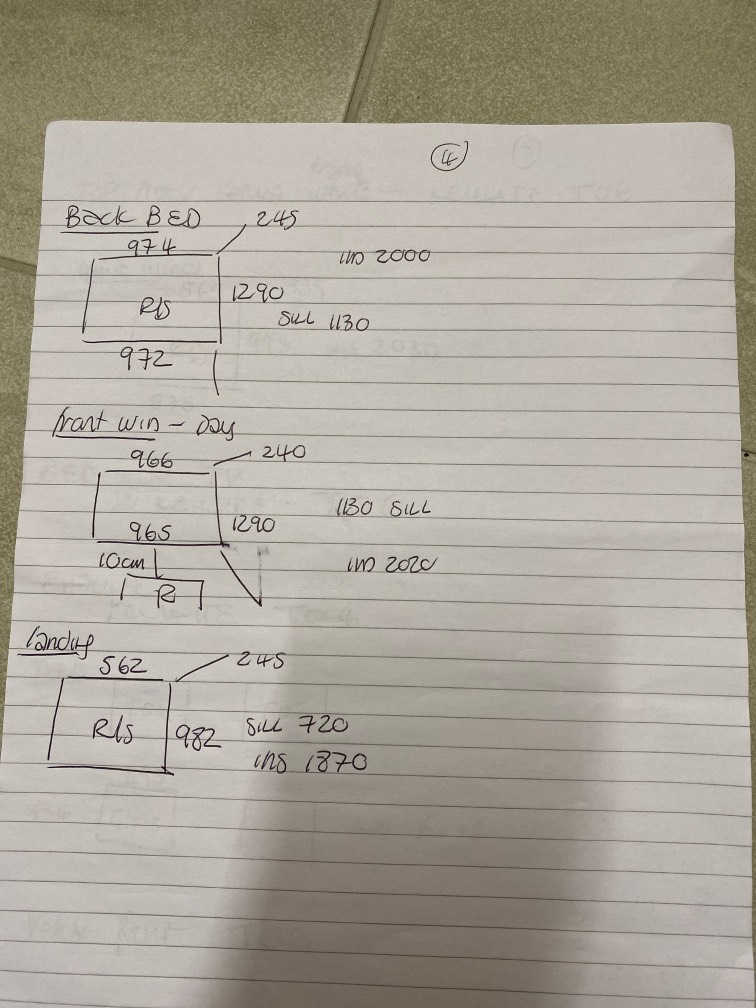 4
Back BED
245
974
ins 2000
1290
R/S
SILL 1130
972
front win - Day
240
966
1130 SILL
965
1290
10cm
ins 2020
R
landing
245
562
R/S
982
SILL 720
ins 1870